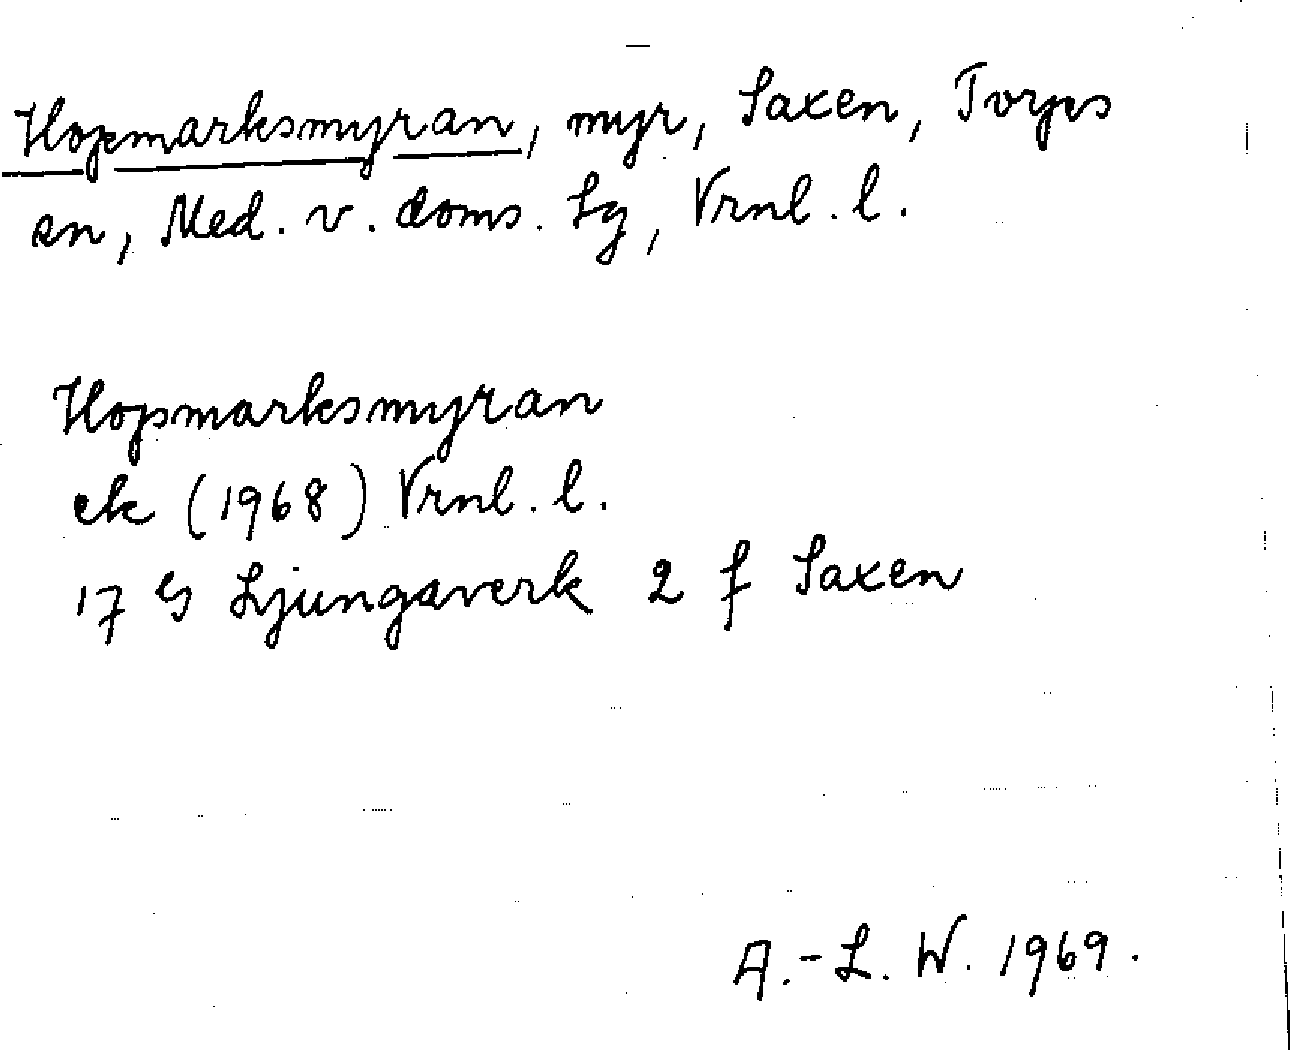 Hopmarksmyran, myr, Saxen, Torps
sn, Med. v. doms. Lg, Vrnl. l.
Hopmarksmyran
ek (1968) Vrnl. l.
17 G Ljungaverk 2 f Saxen
A.-L. W. 1969.